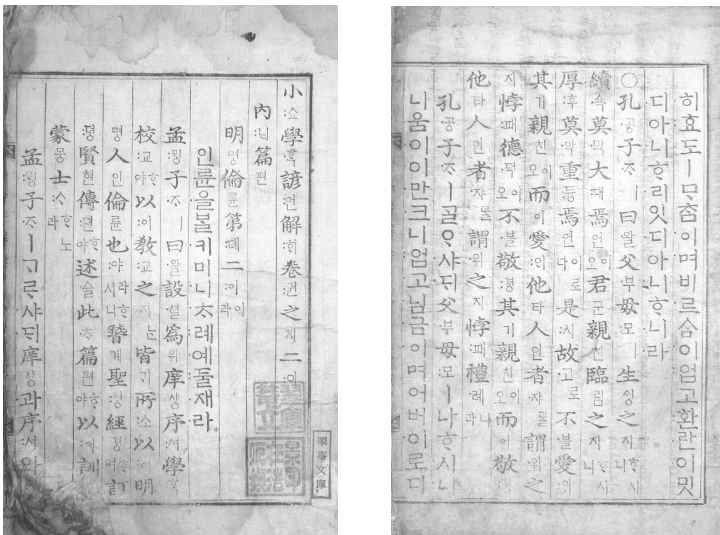 小쇼學ᄒᆞᆨ諺언解ᄒᆡ卷권之지二이
內ᄂᆡ篇편
明명倫륜第뎨二이라
인륜을ᄇᆞᆯ키미니ᄎᆞ례예둘재라
孟ᄆᆡᆼ子ᄌᆞㅣ曰왈設셜爲위庠샹序셔學ᄒᆞᆨ
校교ᄒᆞ야以이敎교之지ᄂᆞᆫ皆ᄀᆡ所소以이明
명人인倫륜也야ㅣ라ᄒᆞ시니稽계聖셩經경ᄒᆞ며訂
뎡賢현傳뎐ᄒᆞ야述슐此ᄎᆞ篇편ᄒᆞ야以이訓
蒙몽士ᄉᆞᄒᆞ노라
孟ᄆᆡᆼ子ᄌᆞㅣᄀᆞᄅᆞ샤ᄃᆡ庠샹과序셔와
히효도ㅣᄆᆞᄎᆞᆷ이며비르솜이업고환란이밋
디아니ᄒᆞ리잇디아니ᄒᆞ니라
○孔공子ᄌᆞㅣ曰왈父부母모ㅣ生ᄉᆡᆼ之지ᄒᆞ시니
續쇽莫막大대焉언이오君군親친臨림之지ᄒᆞ시니
厚후莫막重듕焉언이로다是시故고로不블愛ᄋᆡ
其기親친이오而이愛ᄋᆡ他타人인者쟈를謂위之
지悖패德덕이오不블敬경其기親친이오而이敬
他타人인者쟈를謂위之지悖패禮례니라
孔공子ᄌᆞㅣᄀᆞᆯᄋᆞ샤ᄃᆡ父부母모ㅣ나ᄒᆞ시니
니움이이만크니업고님금이며어버이로디